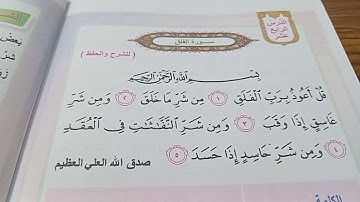 الدرس
الرابع
عشر
سورة الفلق
( للشرح والحفظ )
بِسْمِ اللَّهِ الرَّحْمَٰنِ الرَّحِيمِ
قُلْ أَعُوذُ بِرَبِّ الْفَلَقِ ١ مِن شَرِّ مَا خَلَقَ ٢ وَمِن شَرِّ
غَاسِقٍ إِذَا وَقَبَ ٣ وَمِن شَرِّ النَّفَّاثَاتِ فِي الْعُقَدِ
٤ وَمِن شَرِّ حَاسِدٍ إِذَا حَسَدَ ٥
صدق الله العلي العظيم